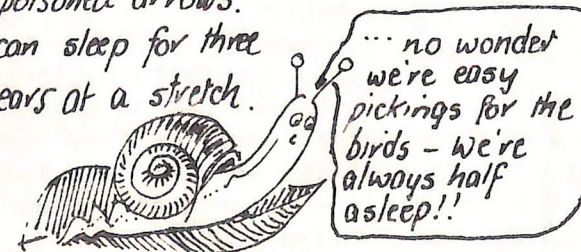 poisoned arrows.
can sleep for three
ears at a stretch.
... no wonder
we're easy
pickings for the
birds – we're
always half
asleep!!